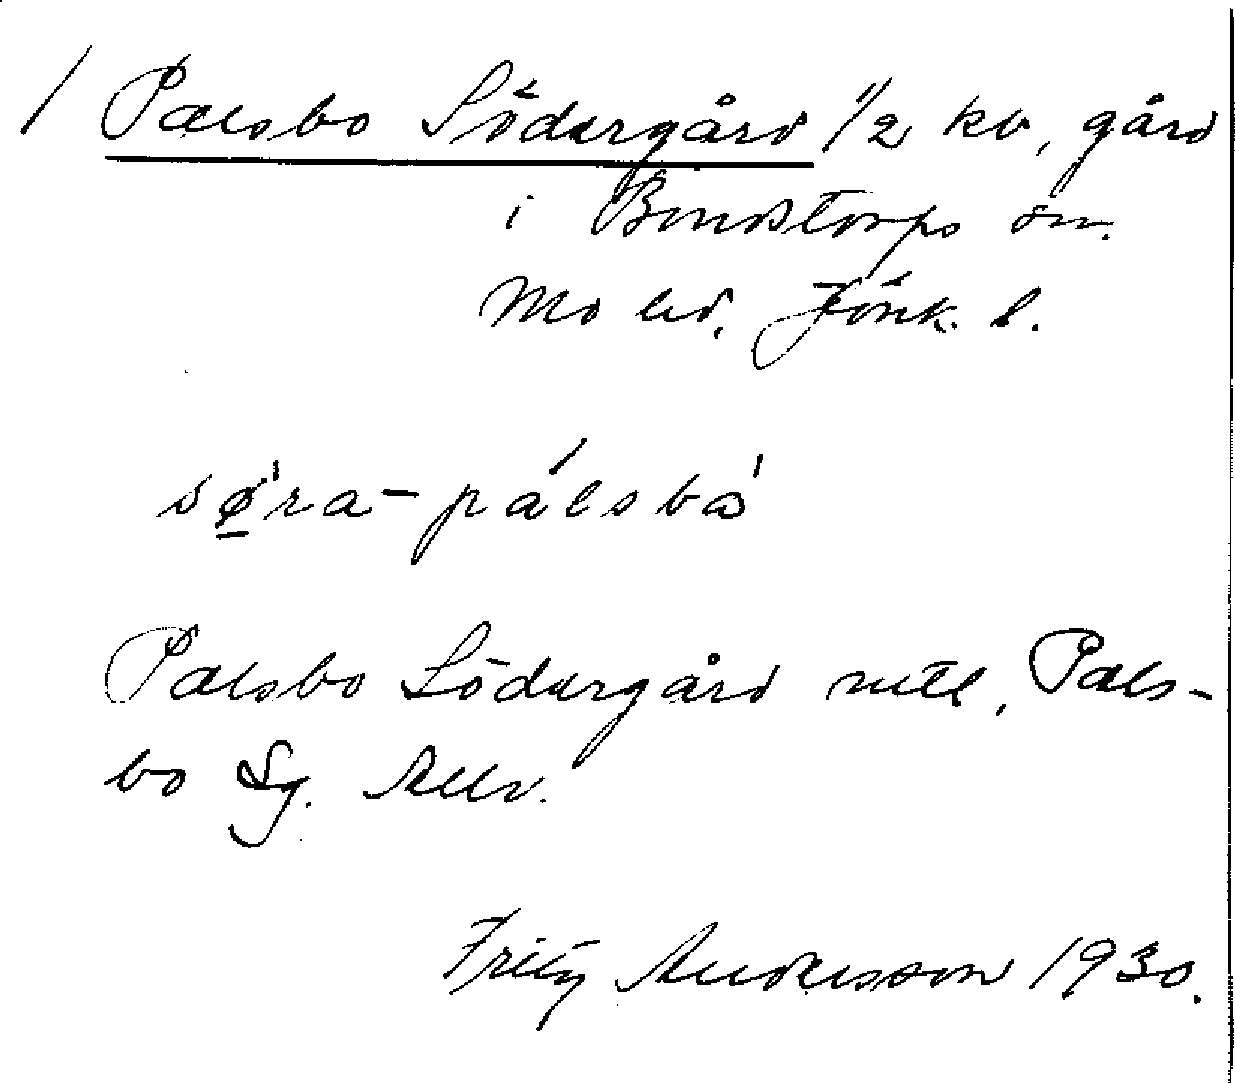 / Palsbo Södergård 1/2 kv, gård
i Bondstorps sn.
Mo hd, Jönk. l.
sǿ̱ra-pálsbå̀
Palsbo Södergård mtl, Pals-
bo Sg. Allr.
Fritz Andersson 1930.